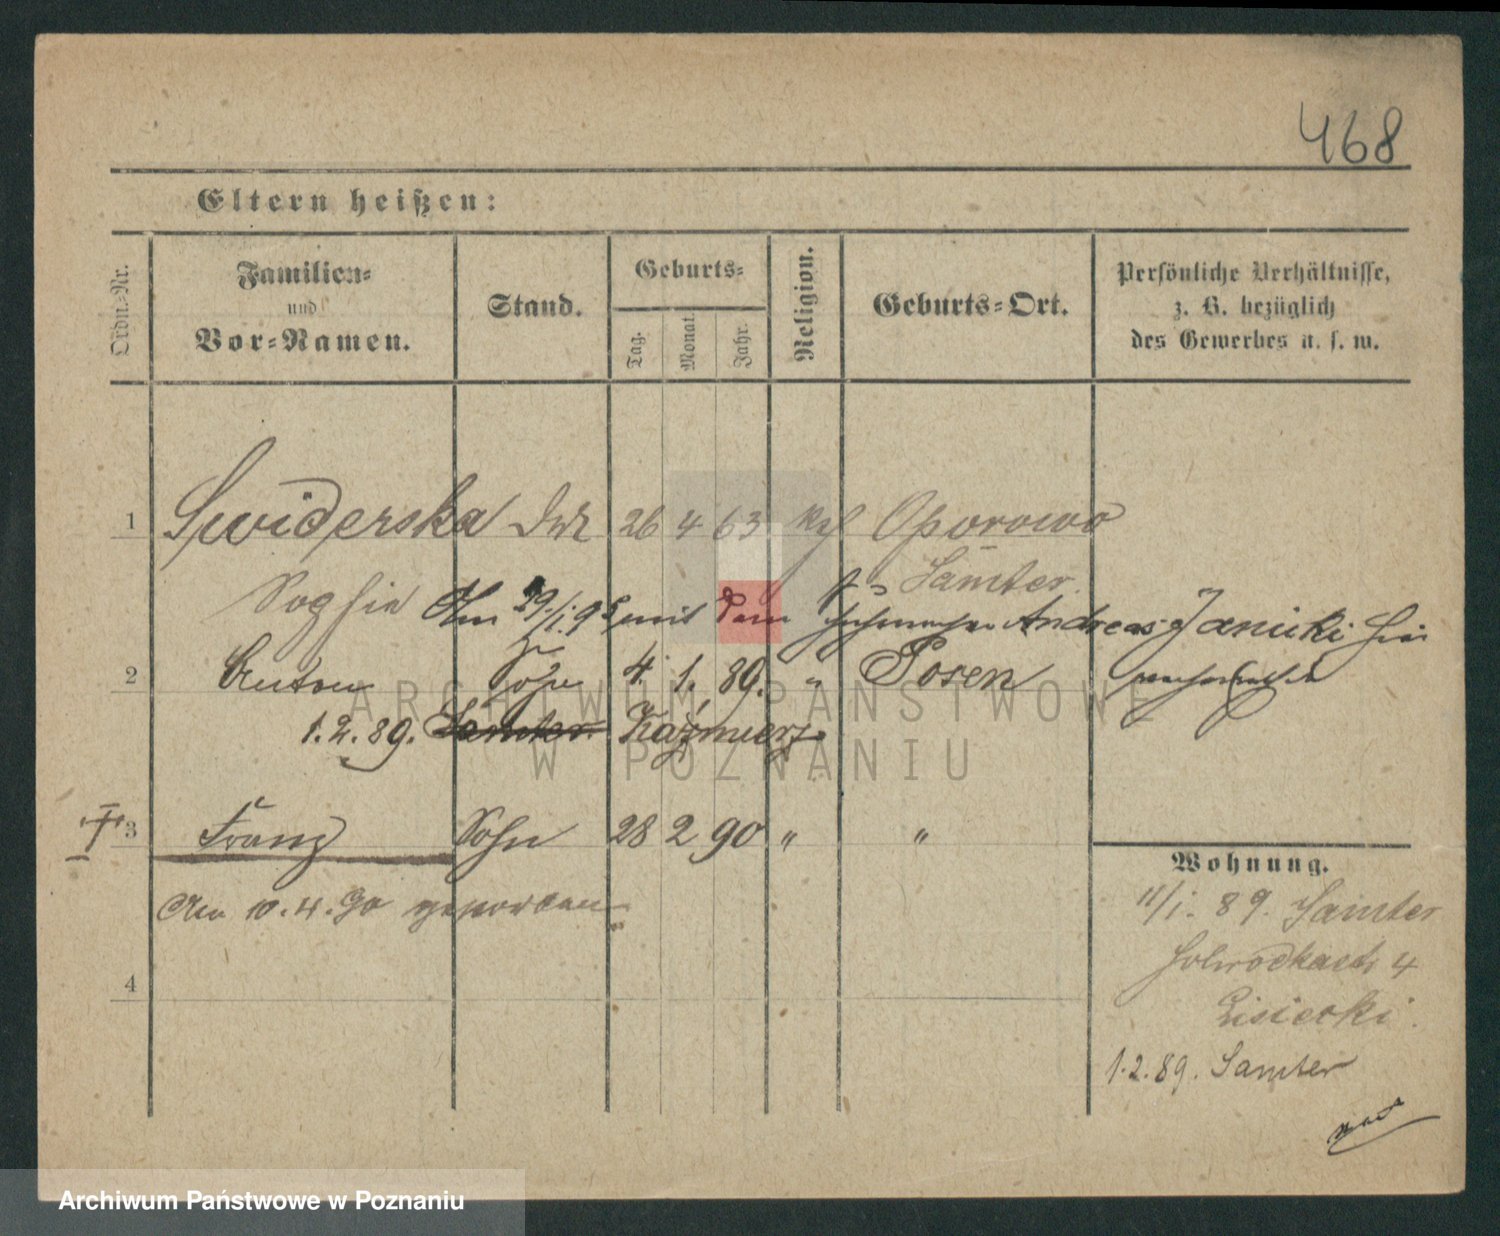 468
Eltern heißen:
Ordn.-Nr.
Familien-
und
Vor-Namen.
Stand.
Geburts-
Tag.
Monat.
Jahr.
Religion.
Geburts-Ort.
Persönliche Verhältnisse,
z. B. bezüglich
des Gewerbes u. s. w.
1 Swiderska 26 4 63 Oporowo
Samter.
Sophie Am 29./1.95 mit dem Andreas Janicki hier
2 Anton Sohn 4. 1. 89. " Posen
1. 2. 89. Samter Kaźmierz
3 Franz Sohn 28 2 90 " "
Am 10. 4. 90 gestorben
4
Wohnung.
11/1. 89. Samter
4
Lisiecki.
1. 2. 89. Samter
ARCHIWUM PAŃSTWOWE
W POZNANIU
Archiwum Państwowe w Poznaniu